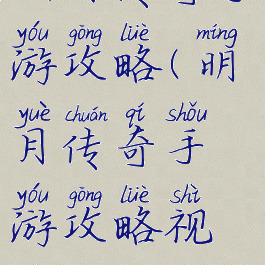 yóu gōng lüè míng
游攻略(明
yuè chuán qí shǒu
月传奇手
yóu gōng lüè shì
游攻略视